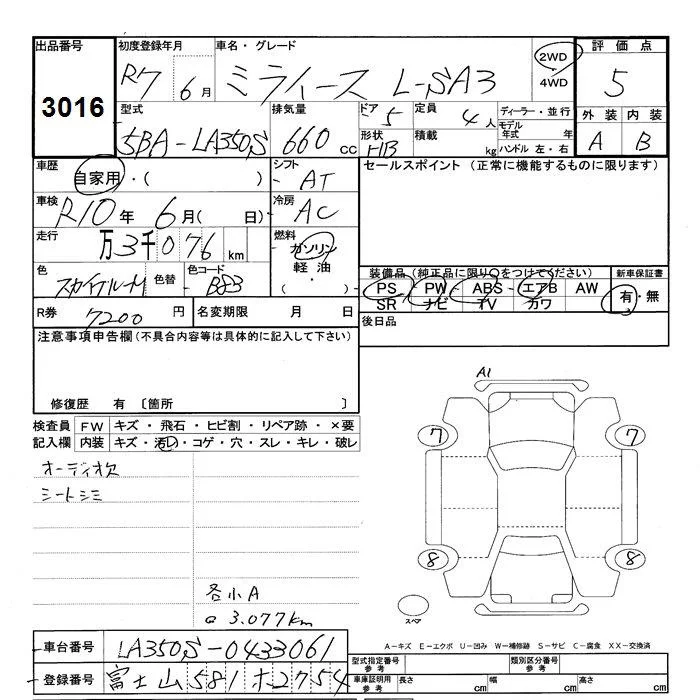 出品番号 初度登録年月 車名・グレード 評価点
3016 R7 6月 ミライース L-SA3 2WD 4WD 5
型式 排気量 ドア 定員 ディーラー・並行 外装 内装
5BA-LA350S 660cc 5 4人 モデル年式 年 A B
形状 HB 積載 kg ハンドル 左・右
車歴 自家用・( ) シフト AT セールスポイント (正常に機能するものに限ります)
車検 R10年 6月( 日) 冷房 AC
走行 万3千076km 燃料 ガソリン 軽油・( )
色 スカイブルーM 色替 色コード B83
装備品(純正品に限り○をつけてください) 新車保証書
PS PW ABS エアB AW 有・無
SR ナビ TV カワ
R券 7200円 名変期限 月 日 後日品
注意事項申告欄(不具合内容等は具体的に記入して下さい)
修復歴 有 〔箇所 〕
検査員 FW キズ・飛石・ヒビ割・リペア跡・×要
記入欄 内装 キズ・汚レ・コゲ・穴・スレ・キレ・破レ
オーディオ欠
シートシミ
各小A
@ 3.077km
A1
7 7
8 8
スペア
A-キズ E-エクボ U-凹み W-補修跡 S-サビ C-腐食 XX-交換済
車台番号 LA350S-0433061
登録番号 富士山 581 ホ2754
型式指定番号 参考 類別区分番号 参考
車庫証明用 参考 長さ cm 幅 cm 高さ cm